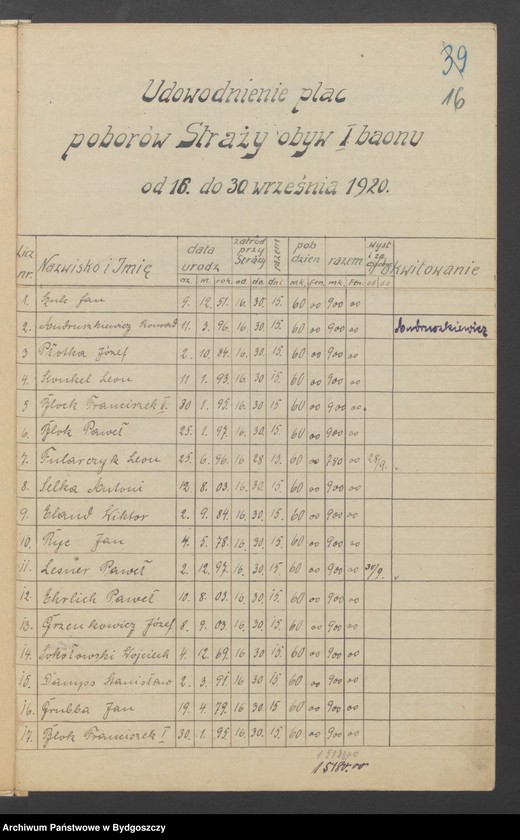 39
16
Udowodnienie płac
poborów Straży obyw I baonu
od 16. do 30 września 1920.
Licz nr. Nazwisko i Imię data urodz zatrud przy Straży razem pob dzien razem wyst i za okwitowanie
dz. m. rok. od. do. dni mk. fen. mk. fen. od do
1. Szulc Jan 9. 12. 51. 16. 30. 15. 60 00 900 00
2. Andruszkiewicz Konrad 11. 3. 96. 16. 30. 15. 60 00 900 00 Andruszkiewicz
3 Płotka Józef 2. 10. 84. 16. 30 15. 60 00 900 00
4. Konkel Leon 11 1. 93. 16. 30 15. 60 00 900 00
5 Block Franciszek II. 30 1. 95. 16. 30 15 60 00 900 00
6. Blok Paweł 25. 1. 97. 16. 30. 15. 60 00 900 00
7. Fularczyk Leon 25. 6. 96. 16 28 13. 60 00 780 00 28/9. „
8. Selka Antoni 12. 8. 03. 16. 30. 15. 60 00 900 00
9. Eland Wiktor 2. 9. 84. 16. 30. 15. 60 00 900 00
10. Ryc Jan 4. 5. 78. 16. 30. 15. 60 00 900 00
11. Lesner Paweł 2. 12. 97. 16. 30. 15. 60 00 900 00 30/9. „
12. Ehrlich Paweł 10. 8. 03. 16. 30. 15. 60 00 900 00
13. Grzenkowicz Józef 8. 9. 03. 16. 30. 15. 60 00 900 00
14. Sokołowski Wojciech 4. 12. 69. 16. 30 15. 60 00 900 00
15. Damps Stanisław 2. 3. 91. 16 30 15. 60 00 900 00
16. Grubka Jan 19. 4. 79. 16. 30 15 60 00 900 00
17. Blok Franciszek I 30. 1. 95. 16. 30. 15. 60 00 900 00
15180.00
Archiwum Państwowe w Bydgoszczy